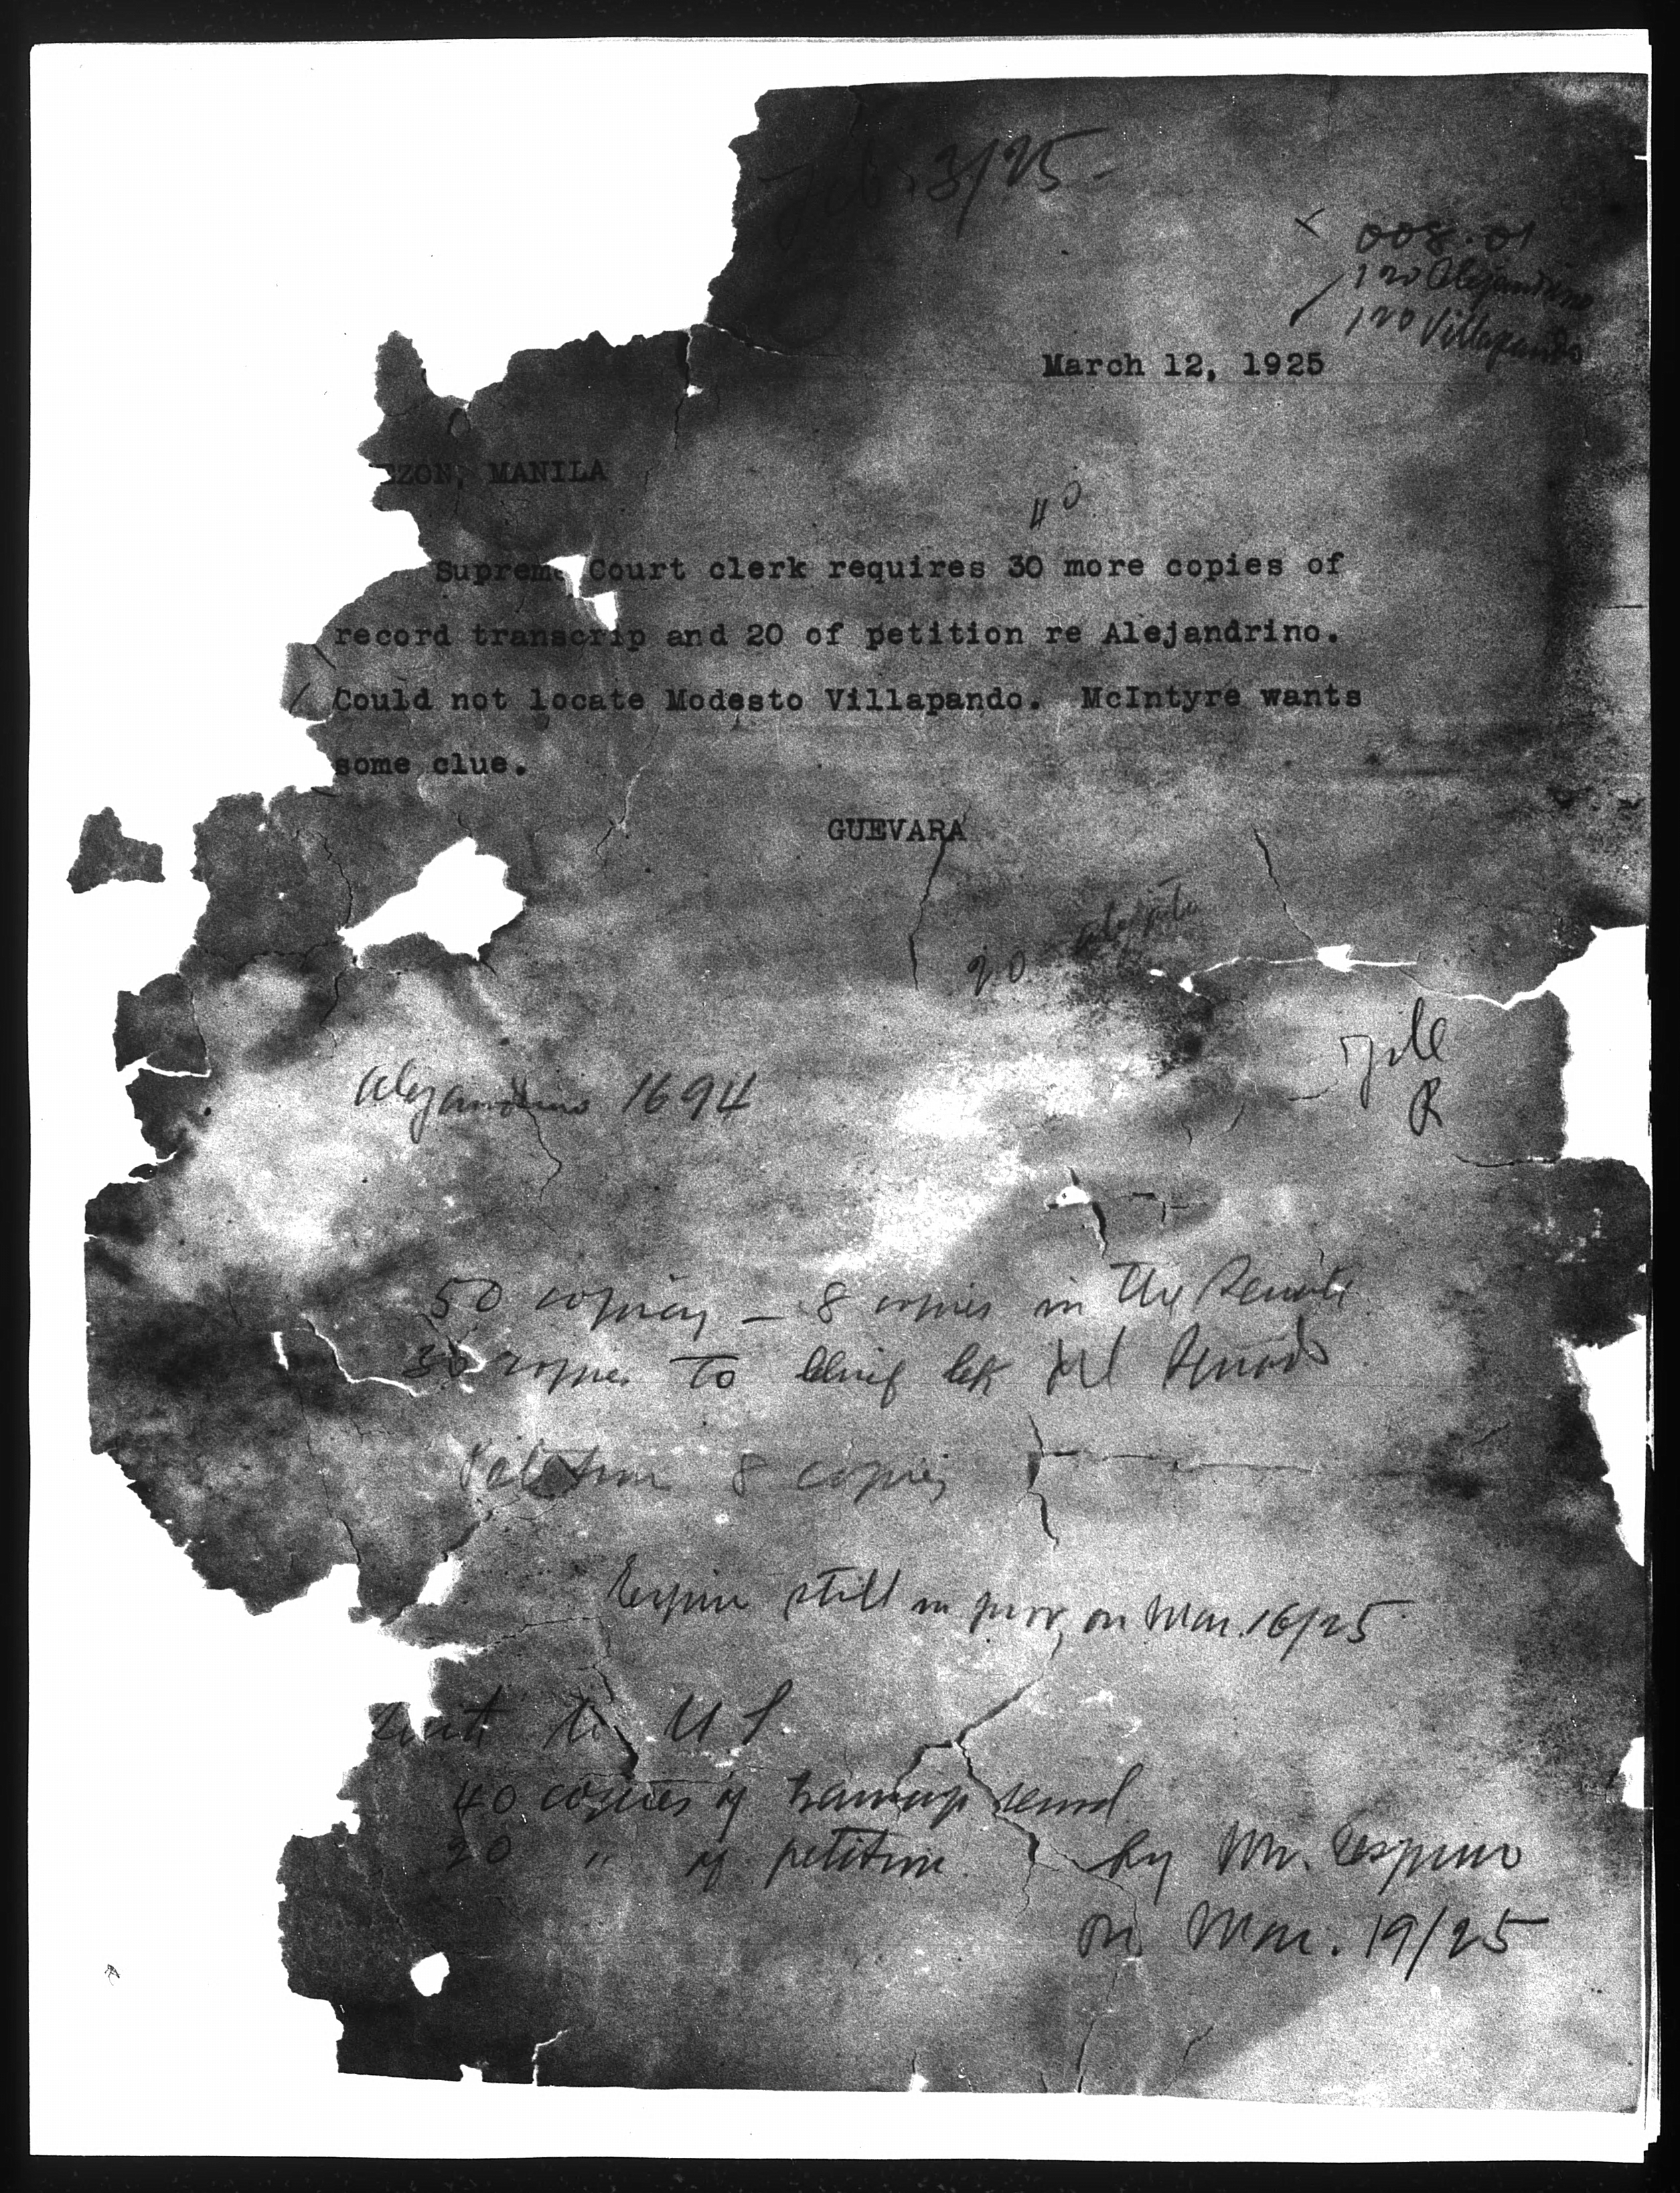 Feb. 3/25 -
008.01
120 Alejandrino
120 Villapando
March 12, 1925
EZON, MANILA
40
Supreme Court clerk requires 30 more copies of
record transcrip and 20 of petition re Alejandrino.
Could not locate Modesto Villapando. McIntyre wants
some clue.
GUEVARA
20
File
R
Alejandrino 1694
50 copies - 8 copies in the Senate
30 copies to
Petition 8 copies
still in prov. on Mar. 16/25
Sent to U S.
40 copies of record
20 " of petition by Mr. Espino
on Mar. 19/25